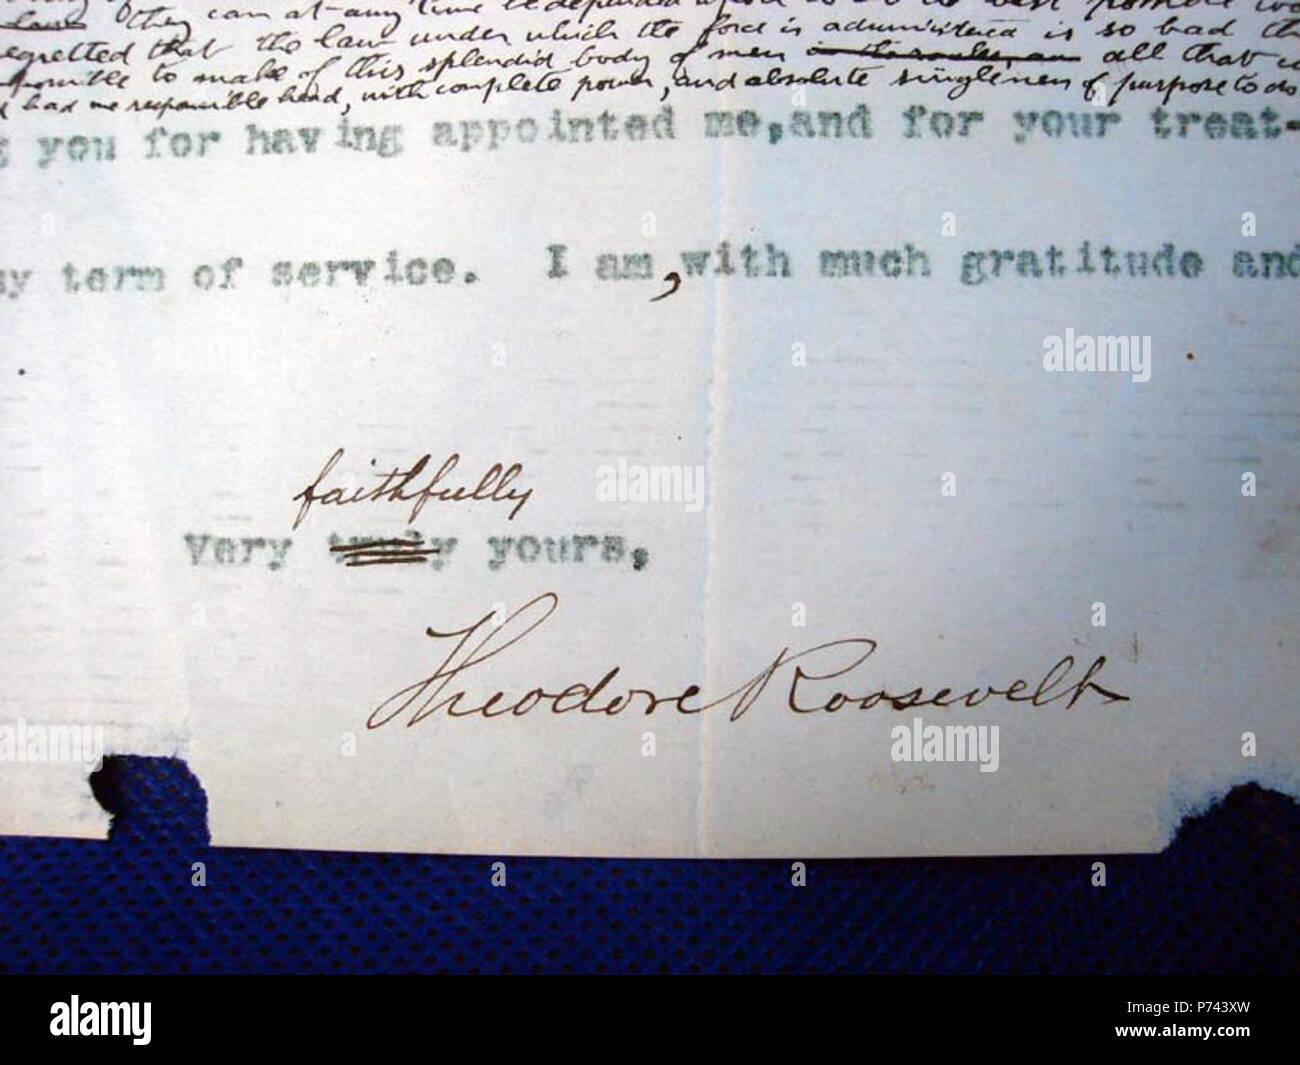 law. They can at any time be depended upon to do the best possible
regretted that the law under which the force is administered is so bad
to make of this splendid body of men all that
had one responsible head, with complete power, and absolute singleness of purpose to do
you for having appointed me, and for your treat-
my term of service. I am, with much gratitude and
faithfully
Very truly yours,
Theodore Roosevelt
alamy
alamy
alamy
alamy
alamy
alamy
Image ID: P743XW
www.alamy.com